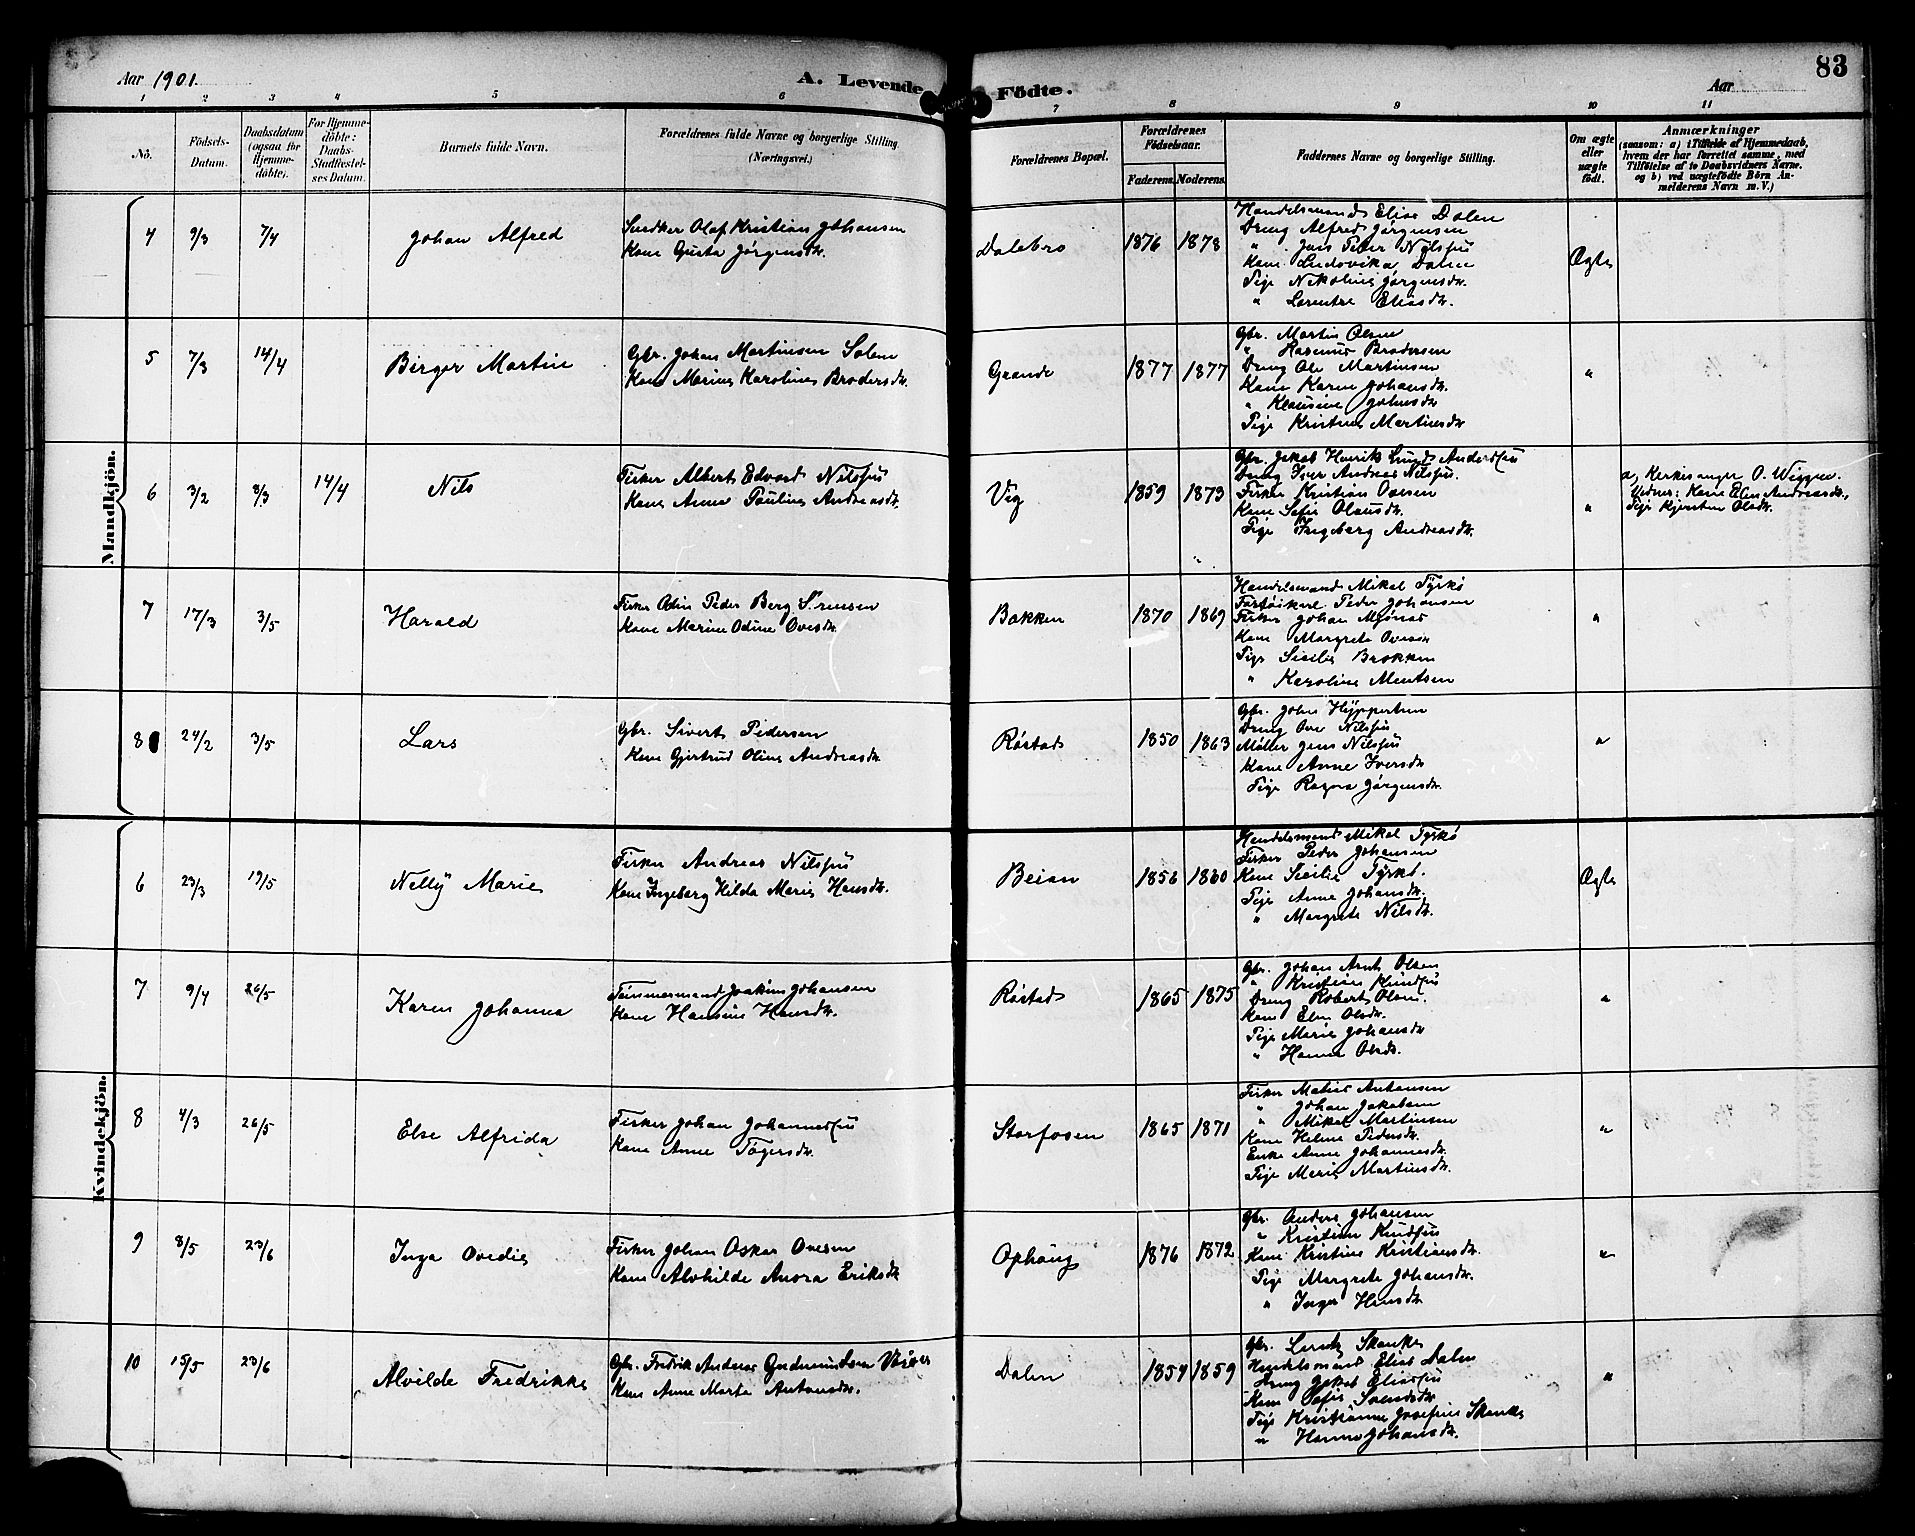 Aar 1901.
A. Levende Födte.
Aar
83
1 2 3 4 5 6 7 8 9 10 11
No.
Födsels-Datum.
Daabsdatum (ogsaa for Hjemme-döbte).
For Hjemme-döbte: Daabs-Stadfæstel-ses Datum.
Barnets fulde Navn.
Forældrenes fulde Navne og borgerlige Stilling. (Næringsvei.)
Forældrenes Bopæl.
Forældrenes Födselsaar.
Faderens. Moderens.
Faddernes Navne og borgerlige Stilling.
Om ægte eller uægte født.
Anmærkninger
(saasom: a) i Tilfælde af Hjemmedaab,
hvem der har forrettet samme, med
Tilföielse af to Daabsvidners Navne.
og b) ved uægtefödte Börn An-
melderens Navn m.V.)
Mandkjön.
4 9/3 7/4 Johan Alfred
Snedker Olaf Kristian Johansen
Kone Gusta Jørgensdtr.
Dalebro 1876 1878
Handelsmand Elias Dalen
Dreng Alfred Jørgensen
" Jens Peter Nilssen
Kone Ludovika Dalen
Pige Nikoline Jørgensdtr.
" Lorentze Eliasdtr.
Ægte
5 7/3 14/4 Birger Martin
Gbr. Johan Martinsen Solem
Kone Marine Karoline Brodersdtr.
Grande 1877 1877
Gbr. Martin Olsen
" Rasmus Brodersen
Dreng Ole Martinsen
Kone Karen Johansdtr.
" Klausine Johnsdtr
Pige Kristine Martinsdtr
"
6 3/2 3/3 14/4 Nils
Fisker Albert Edvard Nilssen
Kone Anna Pauline Andreasdtr.
Vig 1859 1873
Gbr. Jakob Henrik Lund Anderssen
Dreng Iver Andreas Nilssen.
Fisker Kristian Ovesen
Kone Sofie Olausdtr.
Pige Ingeborg Andreasdtr.
"
a, Kirkesanger O. Wiggen.
Vidner: Kone Elen Andreasdtr.,
Pige Kjersten Olsdtr.
7 17/3 3/5 Harald
Fisker Odin Peder Berg Sørensen
Kone Marine Odine Ovesdtr.
Bakken 1870 1869
Handelsmand Mikal Tyskø
Peder Johansen
Fisker Johan Mjønes
Kone Margrete Ovesen
Pige Sicilie Brokken
" Karoline Mentsen
"
8 24/2 3/5 Lars
Gbr. Sivert Pedersen
Kone Gjertrud Oline Andreasdtr
Røstad 1850 1863
Gbr. John
Dreng Ove Nilssen
Møller Jens Nilssen
Kone Anne Iversdtr.
Pige Ragna Jørgensdtr.
"
Kvindekjön.
6 23/3 19/5 Nelly Marie
Fisker Andreas Nilssen
Kone Ingeborg Hilda Marie Hansdtr.
Beian 1856 1860
Handelsmand Mikal Tyskø
Fisker Peder Johansen
Kone Sicilie Tyskø.
Pige Anne Johansdtr.
" Margrete Nilsdtr.
Ægte
7 9/4 26/5 Karen Johanna
Tømmermand Joakim Johansen
Kone Hansine Hansdtr.
Røstad 1865 1875
Gbr. Johan Arnt Olsen
" Kristian Knudsen
Dreng Robert Olsen.
Kone Elen Olsdtr.
Pige Marie Johansdtr
" Hanna Olsdtr.
"
8 4/3 26/5 Else Alfrida
Fisker Johan Johannessen
Kone Anne Tøgersdtr.
Storfosen 1865 1871
Fisker Matias Antonsen
" Johan Jakobsen
" Mikal Martinsen
Kone Helene Pedersdtr.
Enke Anne Johannesdtr.
Pige Marie Martinsdtr.
"
9 8/5 23/6 Inga Ovedie
Fisker Johan Oskar Ovesen
Kone Alvhilde Anora Eriksdtr
Ophaug 1876 1872
Gbr. Anders Johansen
" Kristian Knudsen
Kone Kristine Kristiansdtr.
Pige Margrete Johansdtr.
" Inger Hansdtr
"
10 15/5 23/6 Alvilde Fredrikke
Gbr. Fredrik Andreas Gudmundsen
Kone Anne Marta Antonsdtr.
Dalen 1857 1859
Gbr. Lornts Skanke
Handelsmand Elias Dalen
Dreng Jakob Eliassen
Kone Sofie
Pige Kristianne Josefine Skanke
" Hanna Johansdtr.
"